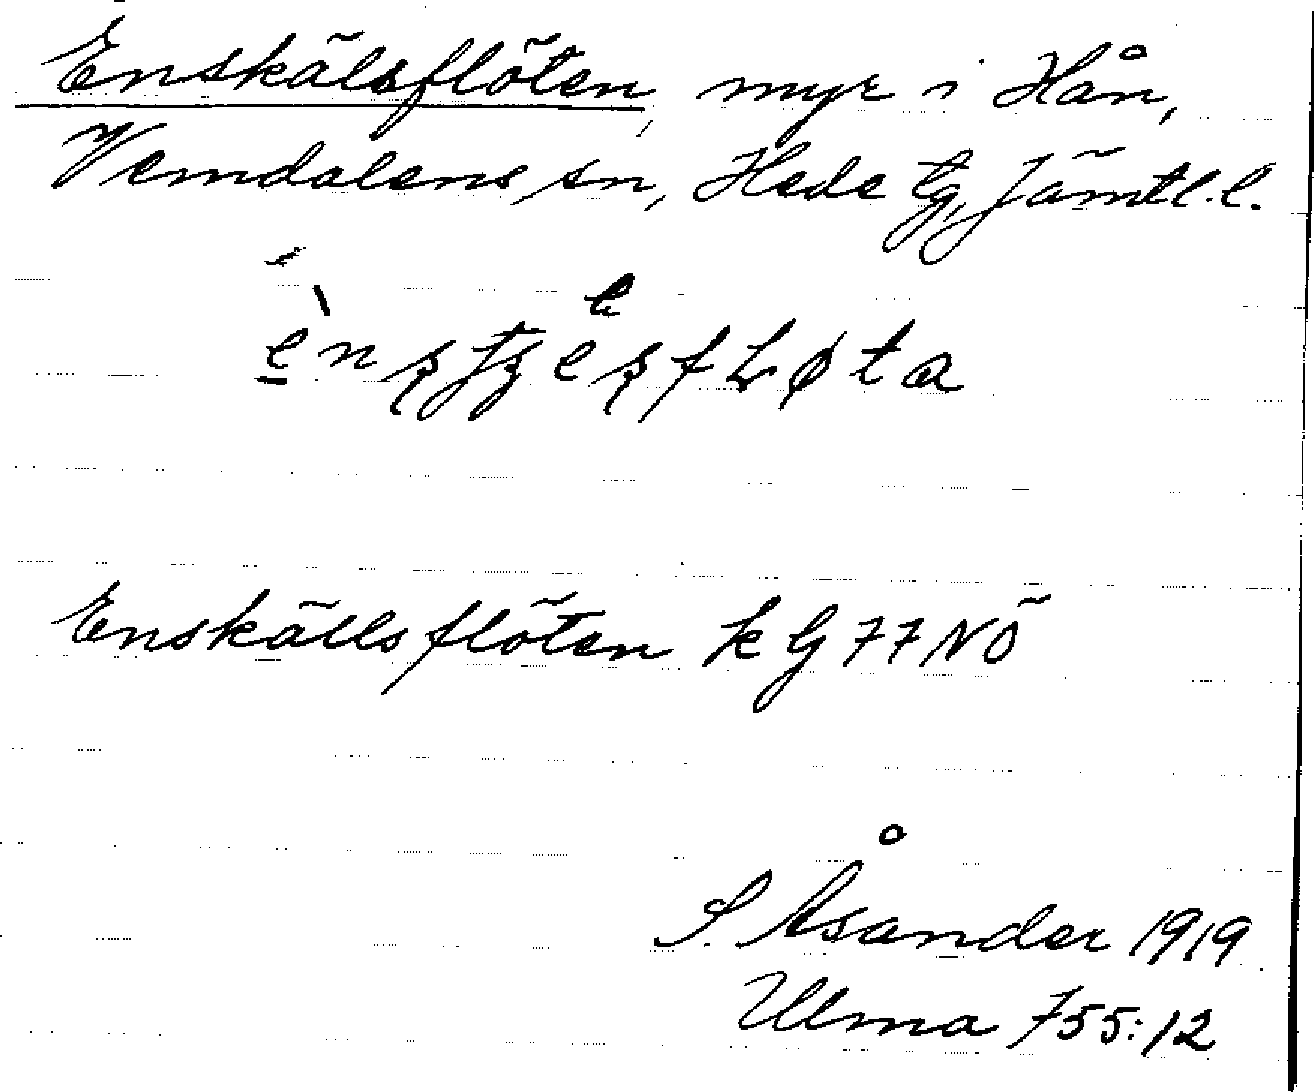 Enskälsflöten, myr i Hån,
Vemdalens sn, Hede tg, Jämtl.l.
Enskällsflöten k G 77 NÖ
S. Åsander 1919
Ulma 755:12